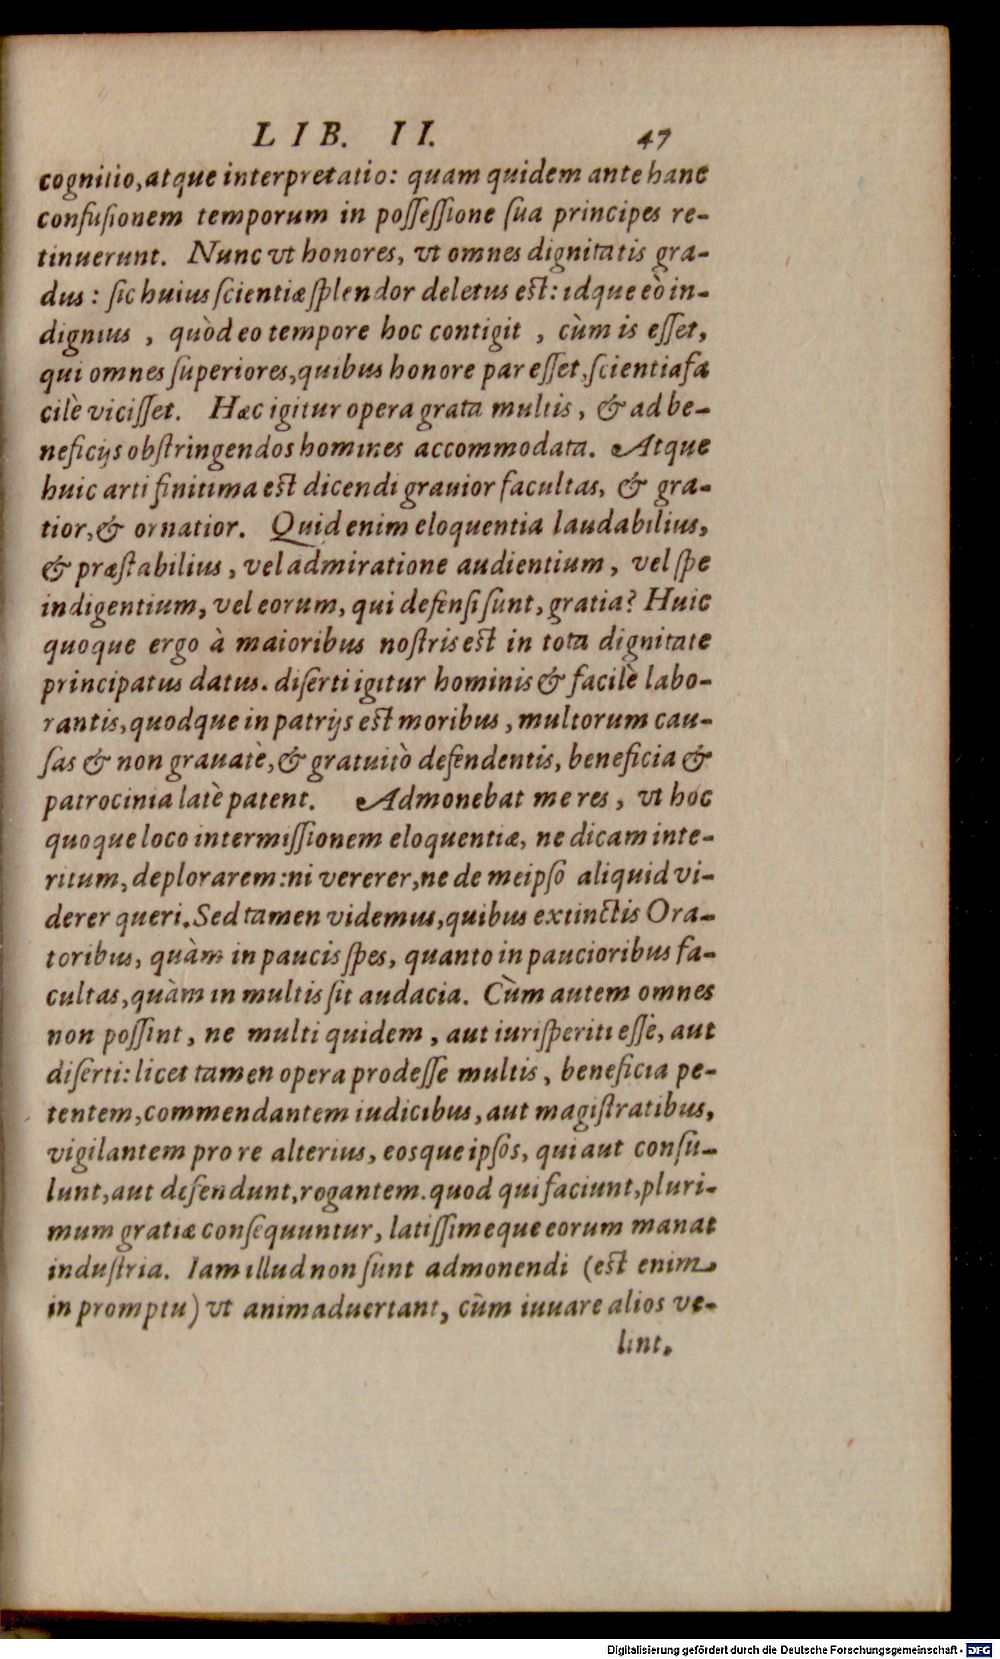 LIB. II. 47
cognitio, atque interpretatio: quam quidem ante hanc
confuſionem temporum in poſſeſſione ſua principes re-
tinuerunt. Nunc vt honores, vt omnes dignitatis gra-
dus: ſic huius ſcientiæ ſplendor deletus eſt: idque eò in-
dignius , quòd eo tempore hoc contigit , cùm is eſſet,
qui omnes ſuperiores, quibus honore par eſſet, ſcientia fa
cilè viciſſet. Hæc igitur opera grata multis, & ad be-
neficijs obſtringendos homines accommodata. Atque
huic arti finitima eſt dicendi grauior facultas, & gra-
tior, & ornatior. Quid enim eloquentia laudabilius,
& præſtabilius, vel admiratione audientium, vel ſpe
indigentium, vel eorum, qui defenſi ſunt, gratia? Huic
quoque ergo à maioribus noſtris eſt in tota dignitate
principatus datus. diſerti igitur hominis & facilè labo-
rantis, quodque in patrijs eſt moribus, multorum cau-
ſas & non grauatè, & gratuitò defendentis, beneficia &
patrocinia latè patent. Admonebat me res, vt hoc
quoque loco intermiſſionem eloquentiæ, ne dicam inte-
ritum, deplorarem: ni vererer, ne de meipſo aliquid vi-
derer queri. Sed tamen videmus, quibus extinctis Ora-
toribus, quàm in paucis ſpes, quanto in paucioribus fa-
cultas, quàm in multis ſit audacia. Cùm autem omnes
non poſſint, ne multi quidem, aut iuriſperiti eſſè, aut
diſerti: licet tamen opera prodeſſe multis, beneficia pe-
tentem, commendantem iudicibus, aut magiſtratibus,
vigilantem pro re alterius, eosque ipſos, qui aut conſu-
lunt, aut defendunt, rogantem. quod qui faciunt, pluri-
mum gratiæ conſequuntur, latiſſimeque eorum manat
induſtria. Iam illud non ſunt admonendi (eſt enim
in promptu) vt animaduertant, cùm iuuare alios ve-
lint,
Digitalisierung gefördert durch die Deutsche Forschungsgemeinschaft - DFG